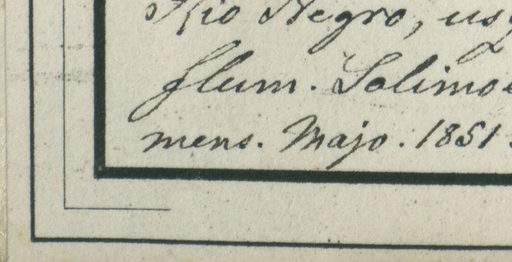 Rio Negro, usq
flum. Solimoe
mens. Majo. 1851.